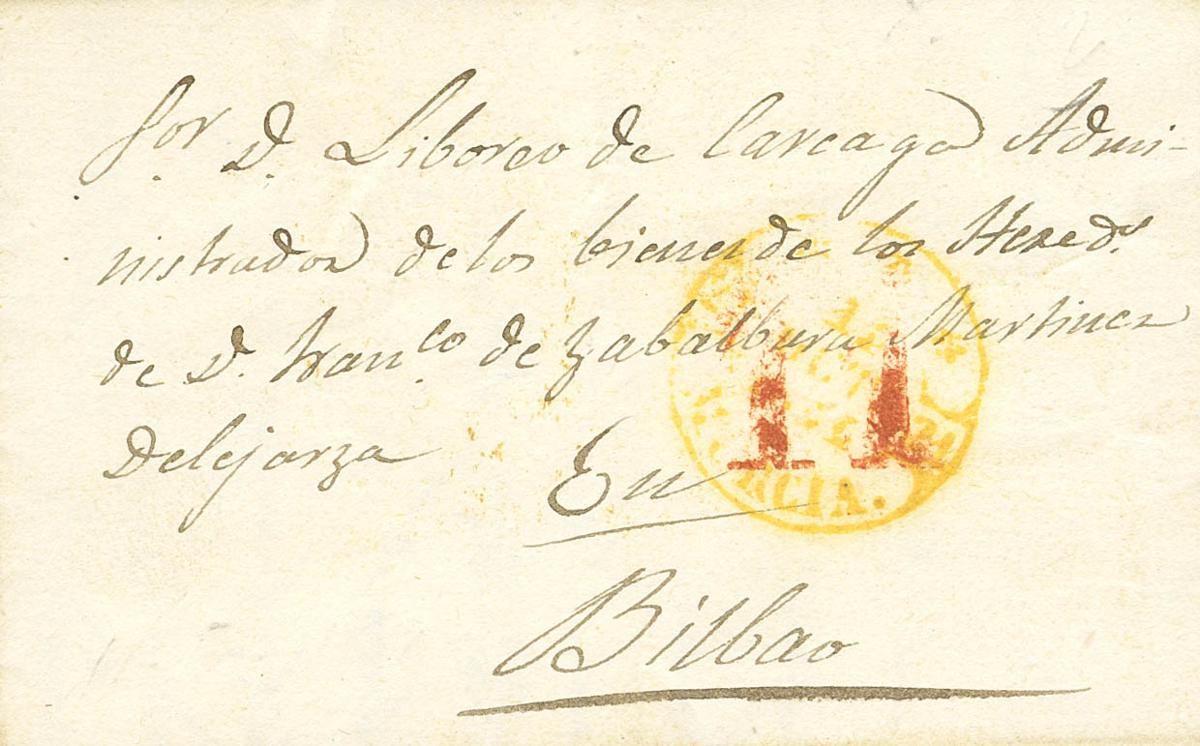 Sor. D. Liboreo de Careaga Admi-
nistrador de los bienes de los Hereds.
de D. Franco. de Zabalbura Martinez
Delejarza
En
Bilbao
11
MURCIA.